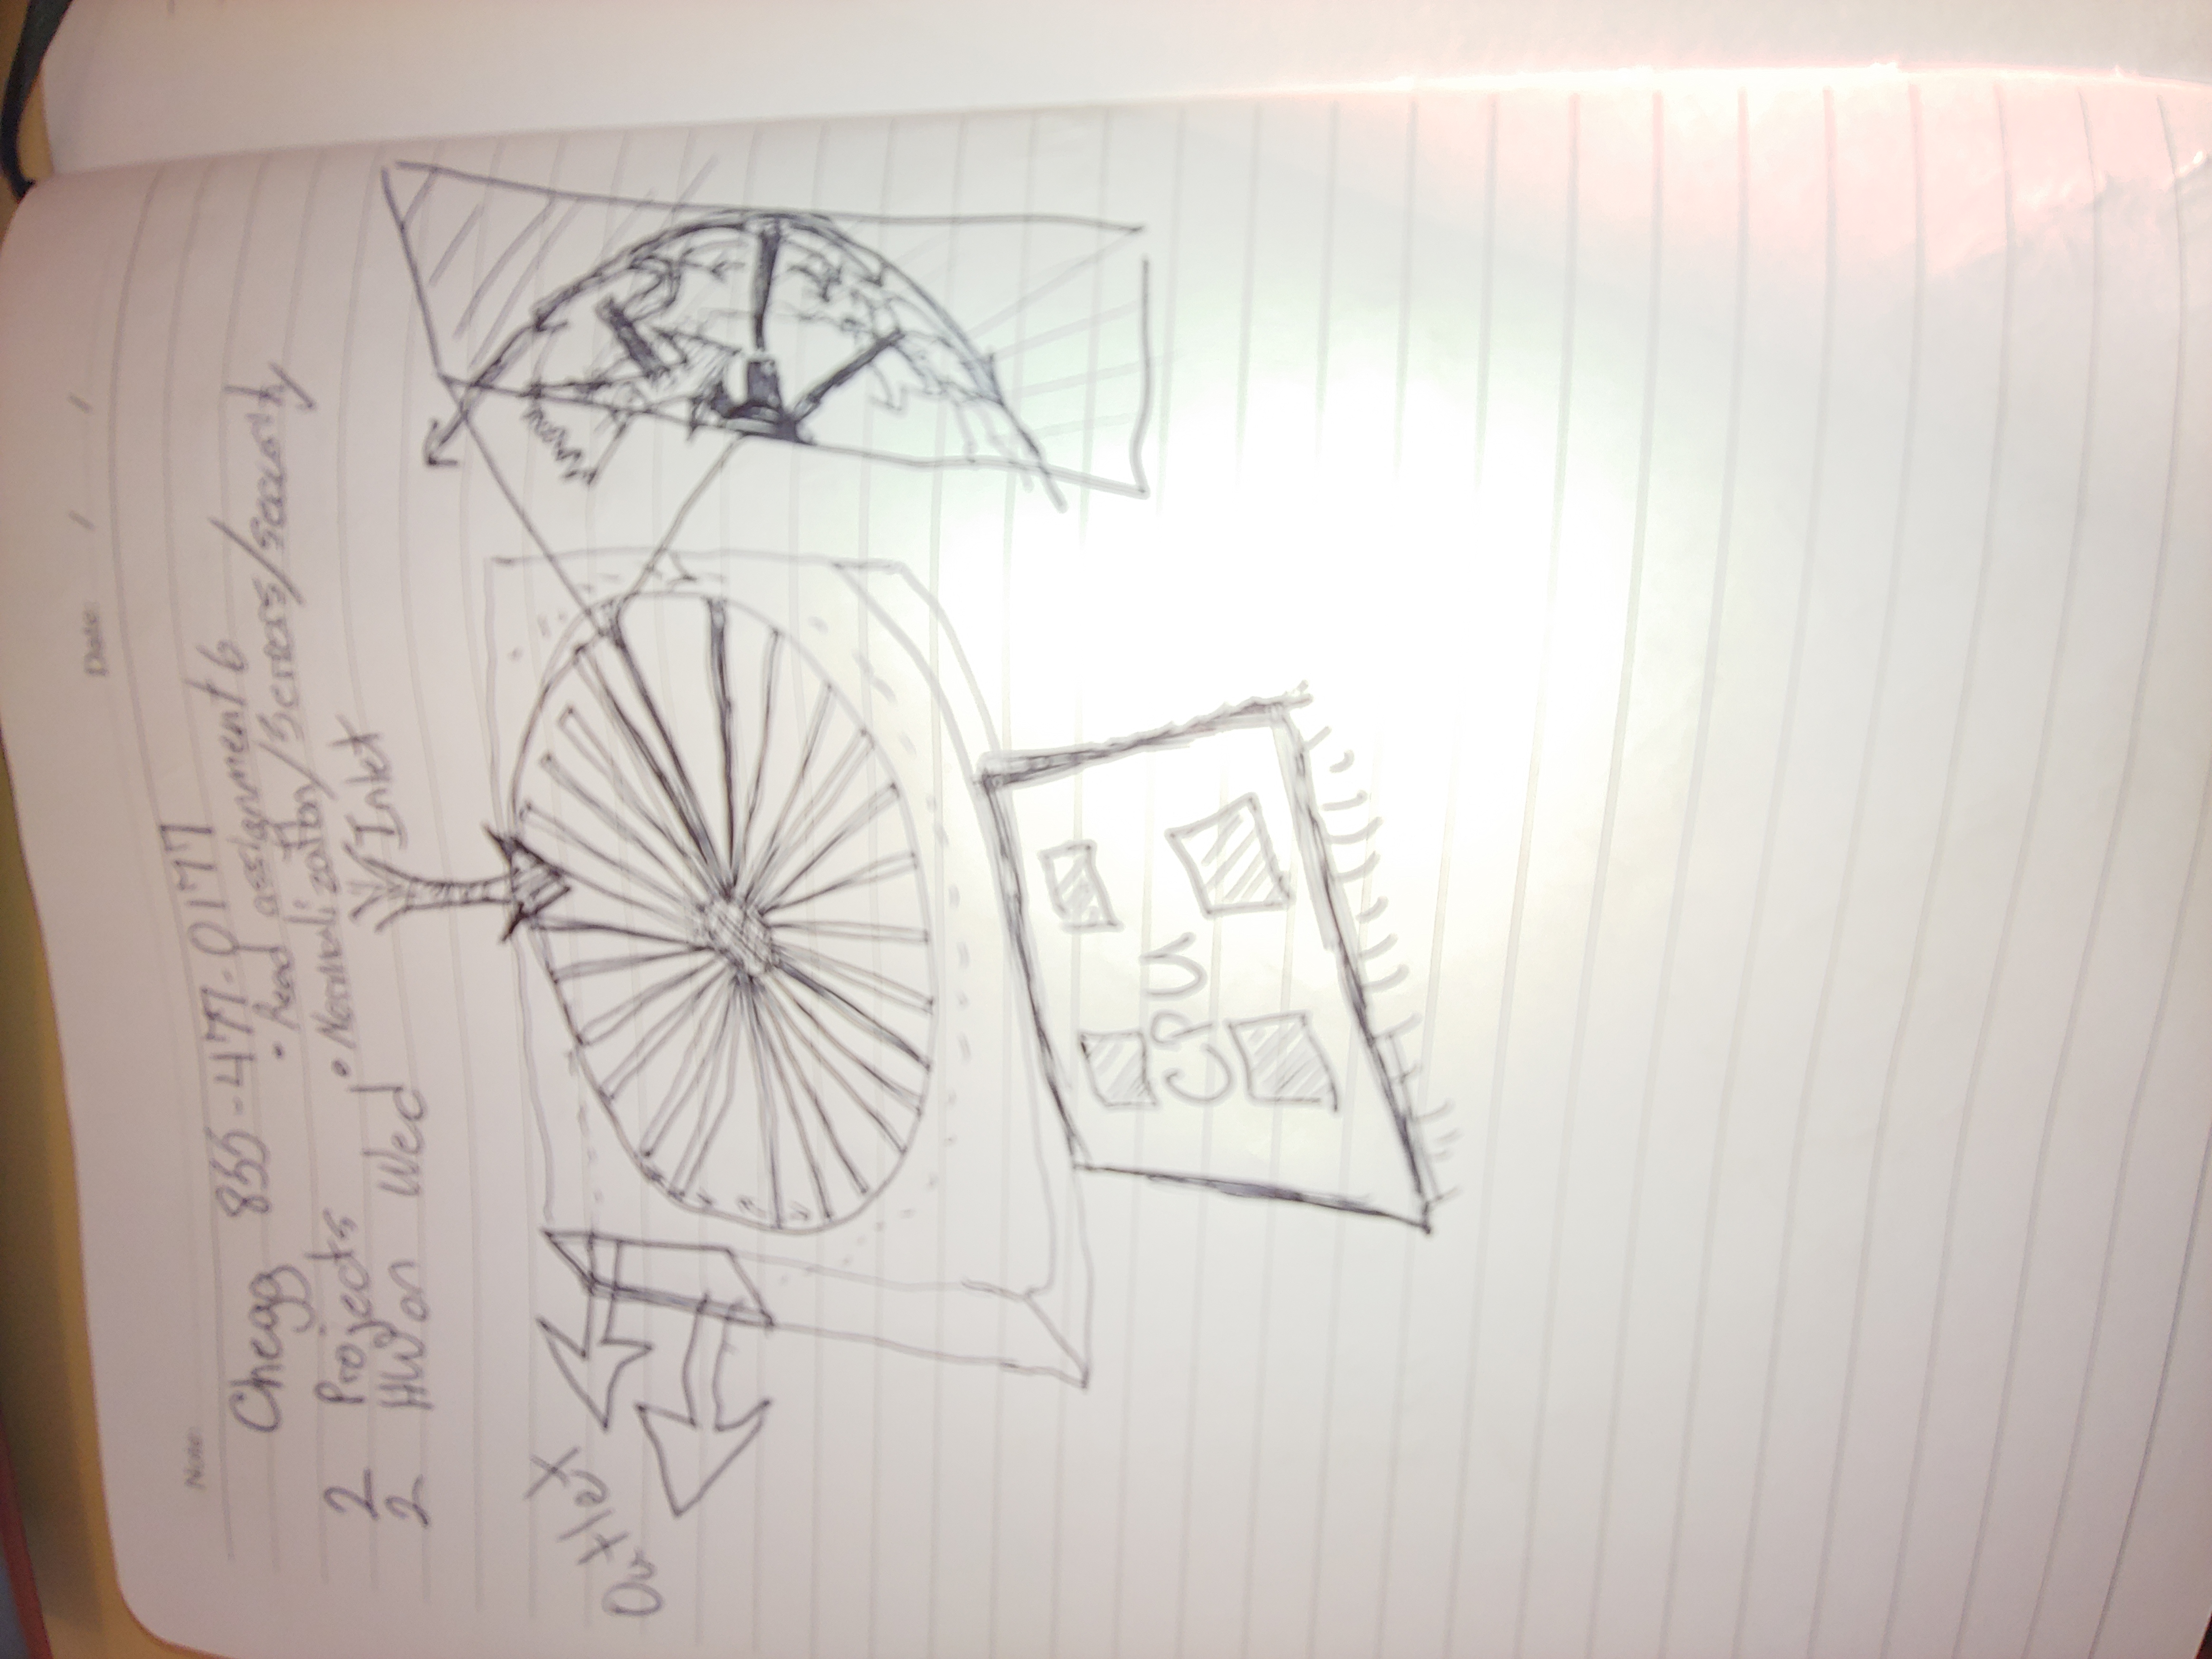 Date: / /
Note:
Chegg 855-477-0177
• Read assignment 6
2 Projects
• Normalization/Servers/security
2 HW on Wed
Inlet
Outlet
CPU